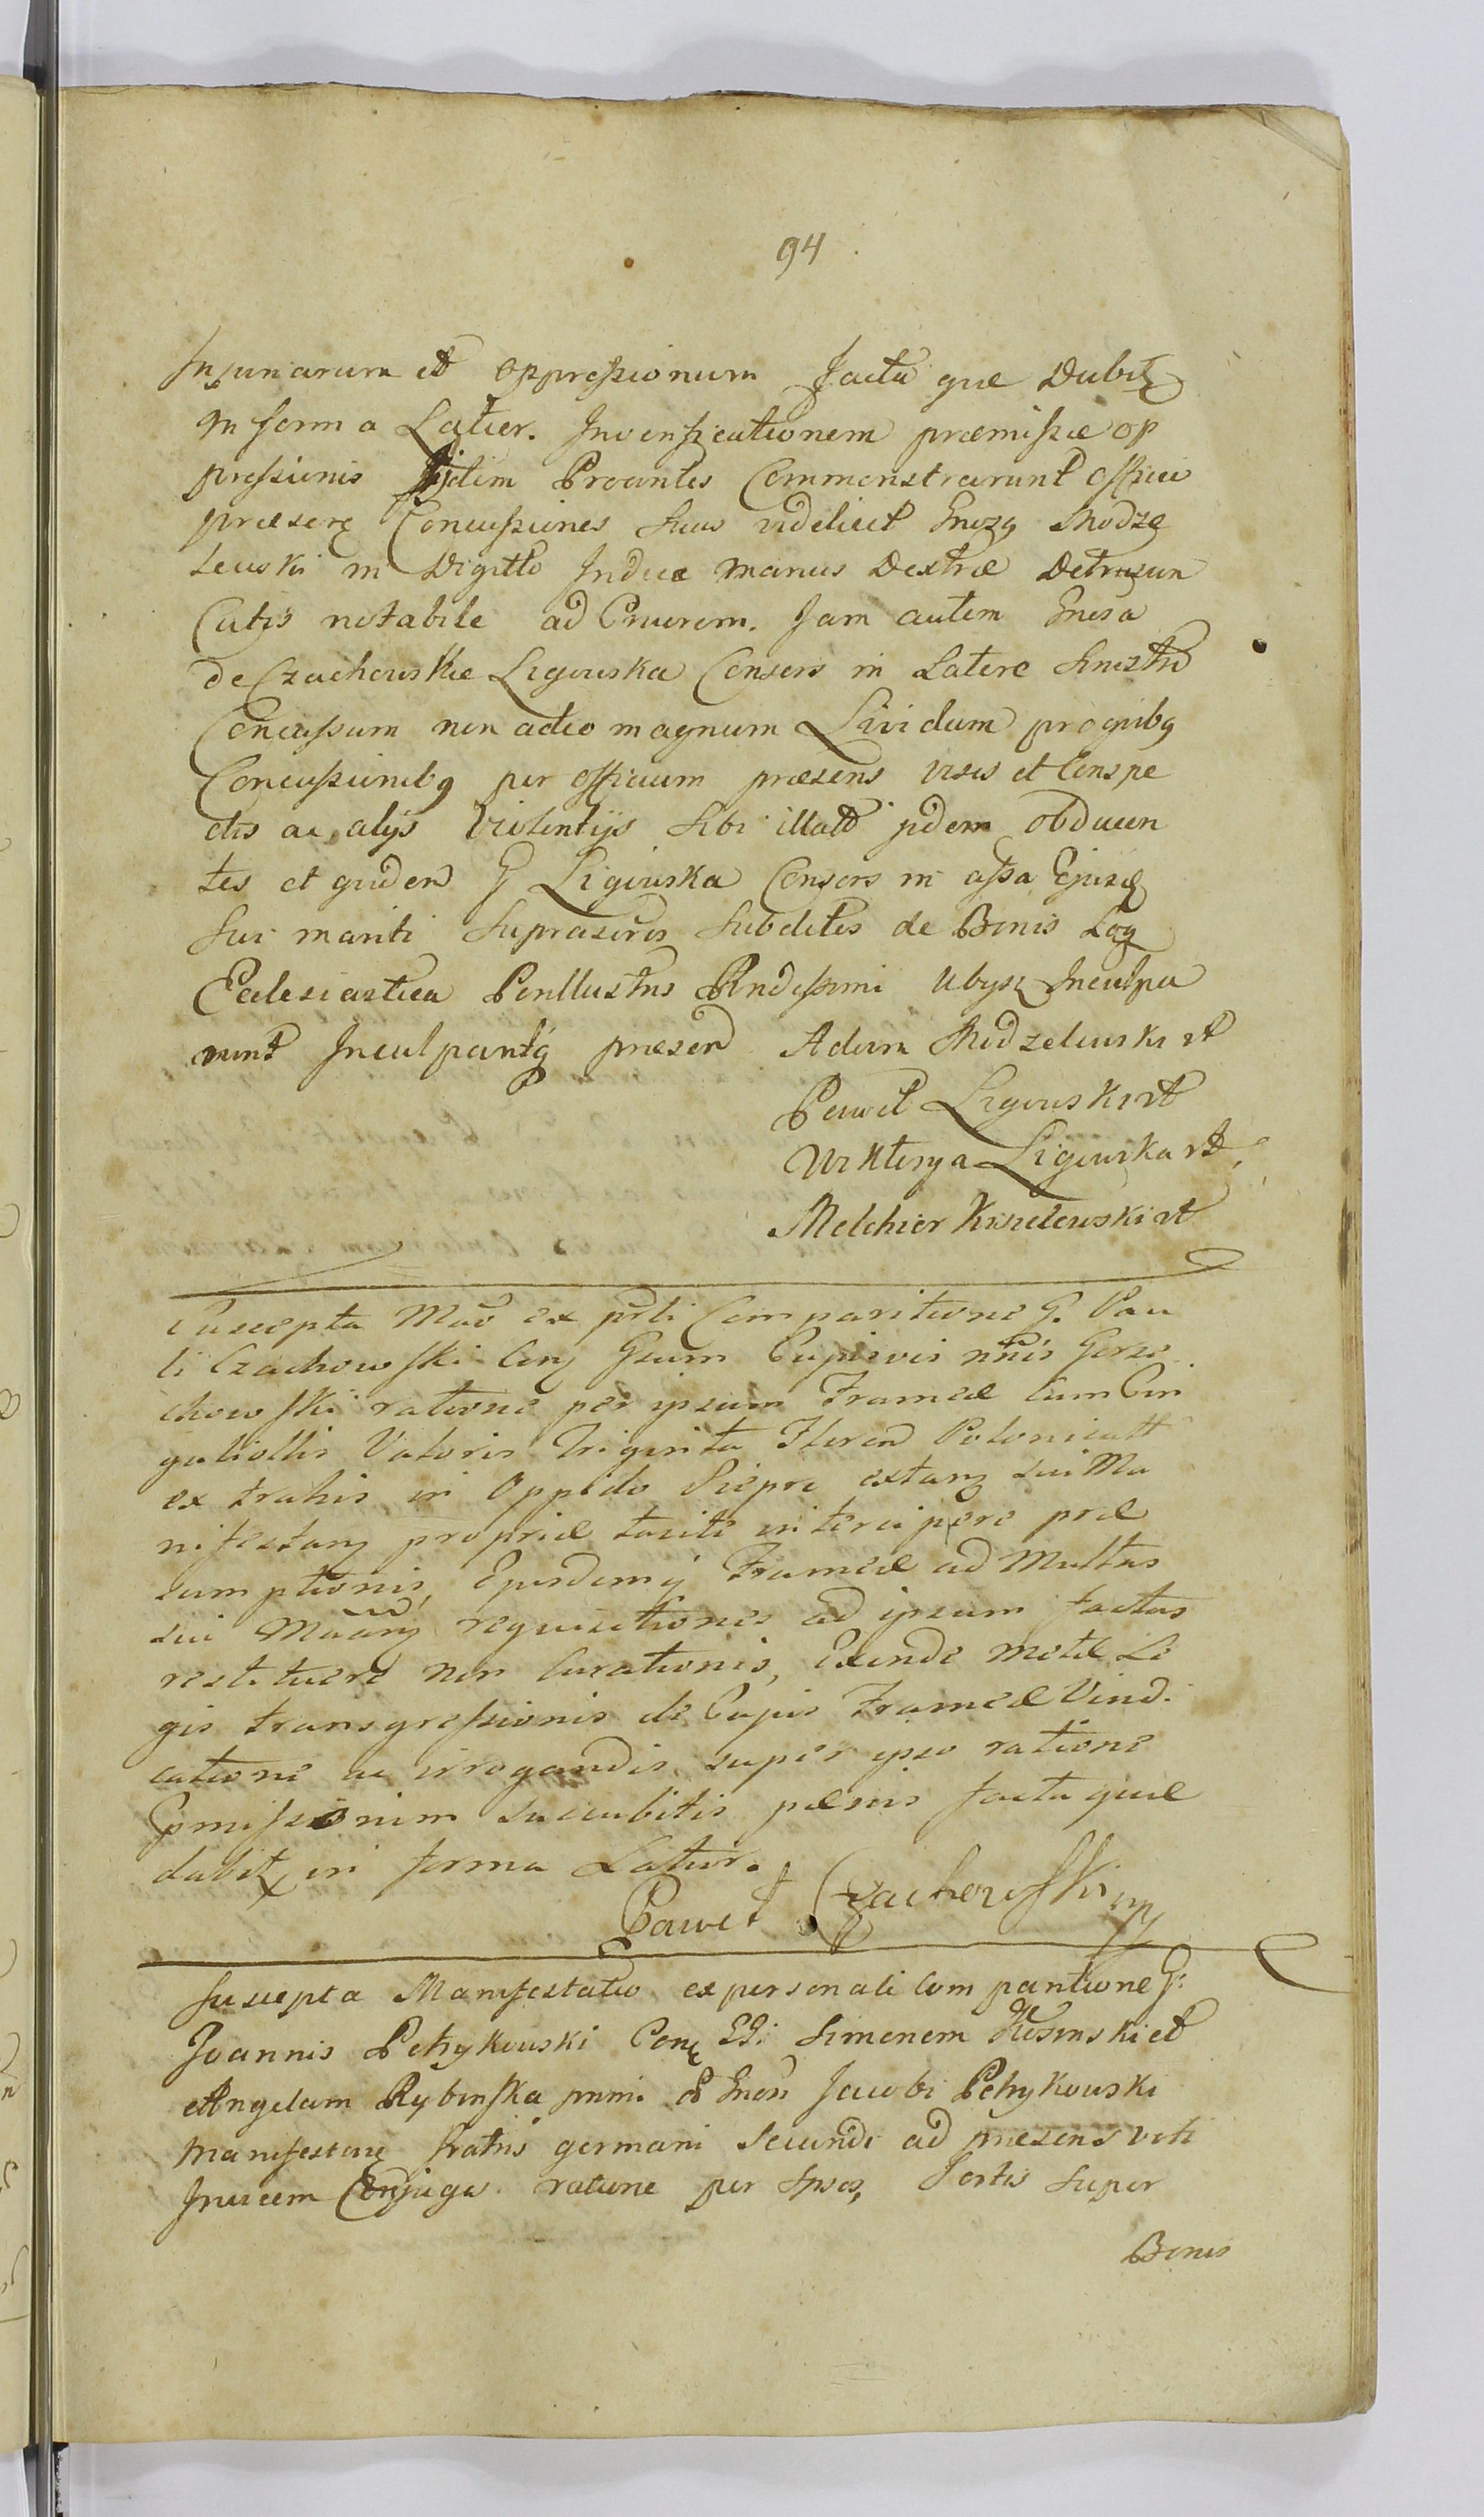 94
Injuriarum et oppressionum facta quæ Dubit
In forma Latior. Invensicationem præmissæ op
pressionis Iidem Proantes Commonstrarunt officio
præsenę Concussiones suas videlicet Gnosg Modze
lewski in Digitto Indice manus Dextræ Detrusum
Cutis notabile ad Cruorem. Jam autem Gnosa
de Czachowskie Ligowska Consors in Latere sinistro
Concussum non adeo magnum Lividum pro quibg
Concussionibg per officium præsens visis et Conspe
ctis ac alijs violentijs sibi illatt ijdem obducen
tes et quidem G Ligowska Consors in assa Ejusd
sui mariti suprascris subditos de Bonis Log
Ecclesiastica Perillustris Rndissimi Ubysz Inculpa
runt Inculpantg præsen Adam Modzelewski mp
Paweł Ligowski mp
Wiktorya Ligowska mp
Melchior Kisielewski mp
Suscepta Mão ex prli Comparitione G. Pau
li Czachowski Cong Gsum Cupievis nñis Gorze
chowski ratione per ipsum Frameæ Cum Cin
guliollis Valoris Triginta Floren Polonicatt
ex trahis in Oppido Sieprc extang sui Ma
nifestang propriæ tacite intercipere præ
sumptionis, Ejusdemg Frameæ ad Multas
sui Mãang requisitiones ad ipsum factas
restituere non Curationis, Exinde metæ Le
gis transgressionis de Cujus Frameæ Vindi
catione ac irrogandis super ipso ratione
Pmissionim succubitis pænis facta quæ
dabit in forma Latior.
Paweł Czachowski mp
Suscepta Manifestatio ex personali Comparitione G:
Joannis Petrykowski Conę GG: Simonem Kosinski et
Angelam Rybinska primi et Gnosi Jacobi Petrykowski
manifestanę fratris germani secundi ad præsens voti
Invicem Conjuga. ratione per Ipsos, Sortis super
Bonis